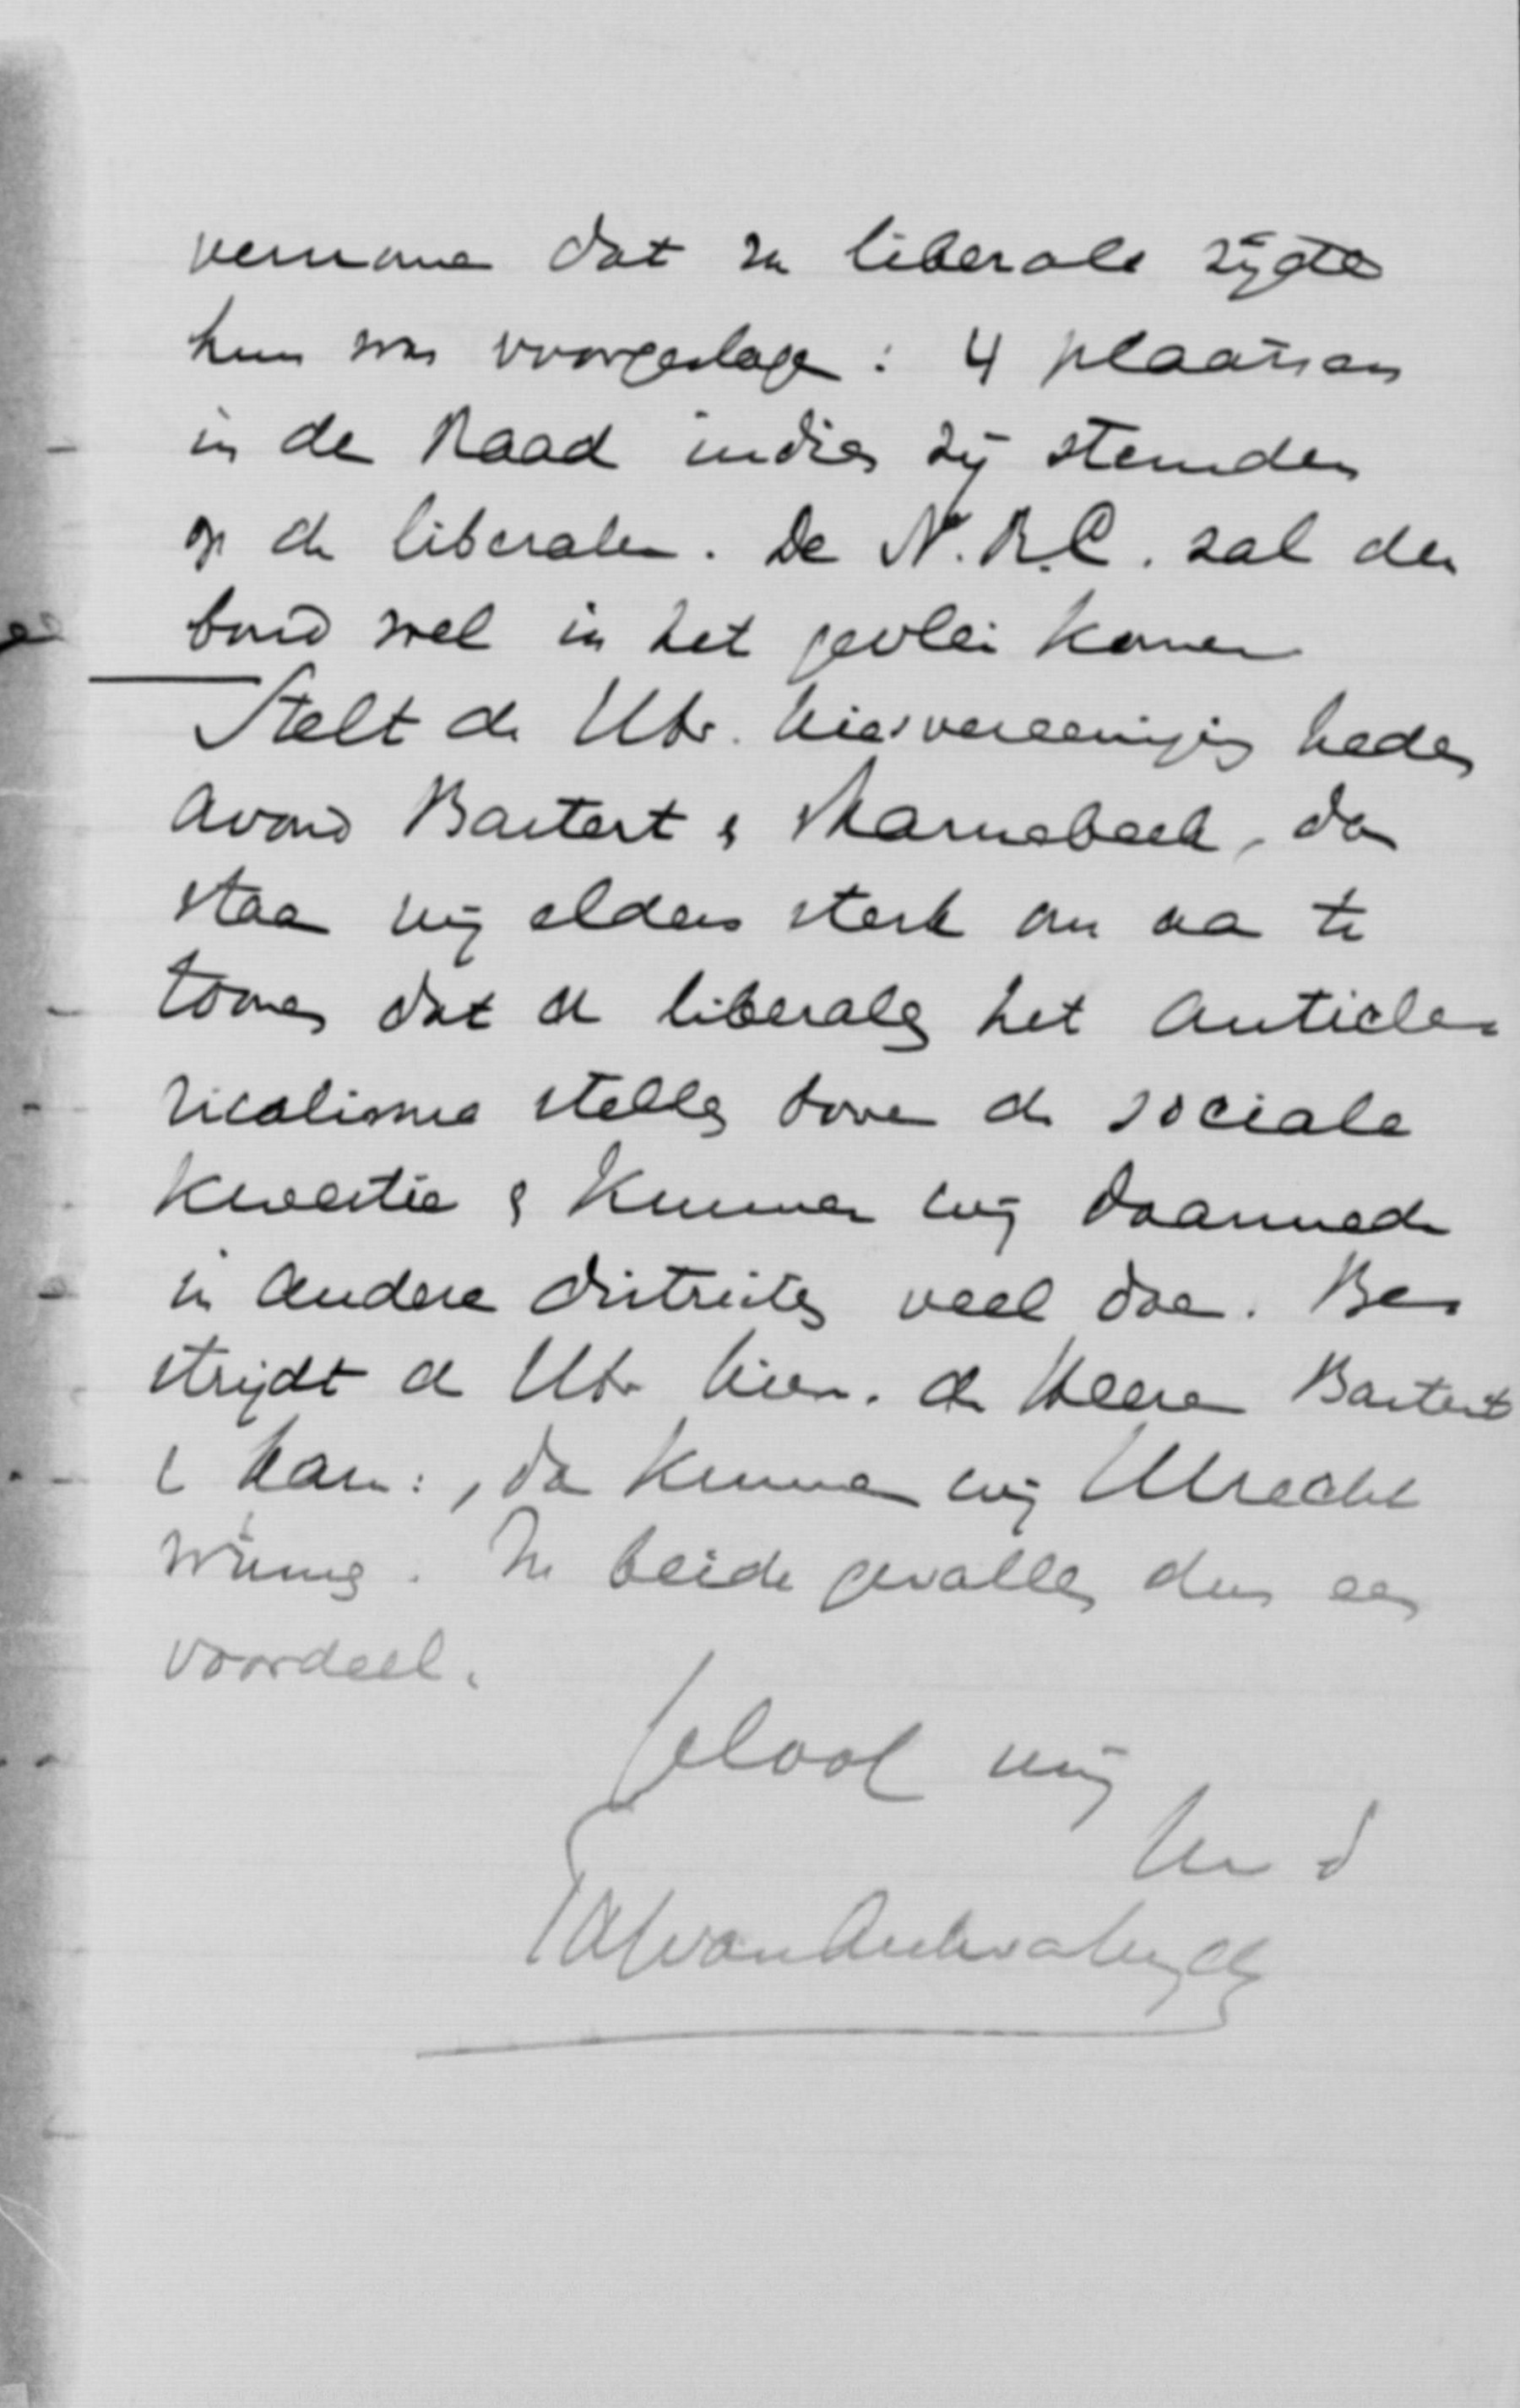 vernomen dat van liberale zijde
hun was voorgeslagen: 4 plaatsen
in de Raad indien zij stemden
op de liberalen. De N.R.C. zal den
bond wel in het gevlei komen
Stelt de Utr. kiesvereeniging heden
avond Bastert & Karnebeek, dan
staan wij elders sterk om aan te
toonen dat de liberalen het anticle-
ricalisme stellen boven de sociale
kwestie & kunnen wij daarmede
in andere districten veel doen. Be-
strijdt de Utr. kiesv. de Heeren Bastert
& Karn:, dan kunnen wij Utrecht
winnen. In beide gevallen dus een
voordeel.
Geloof mij